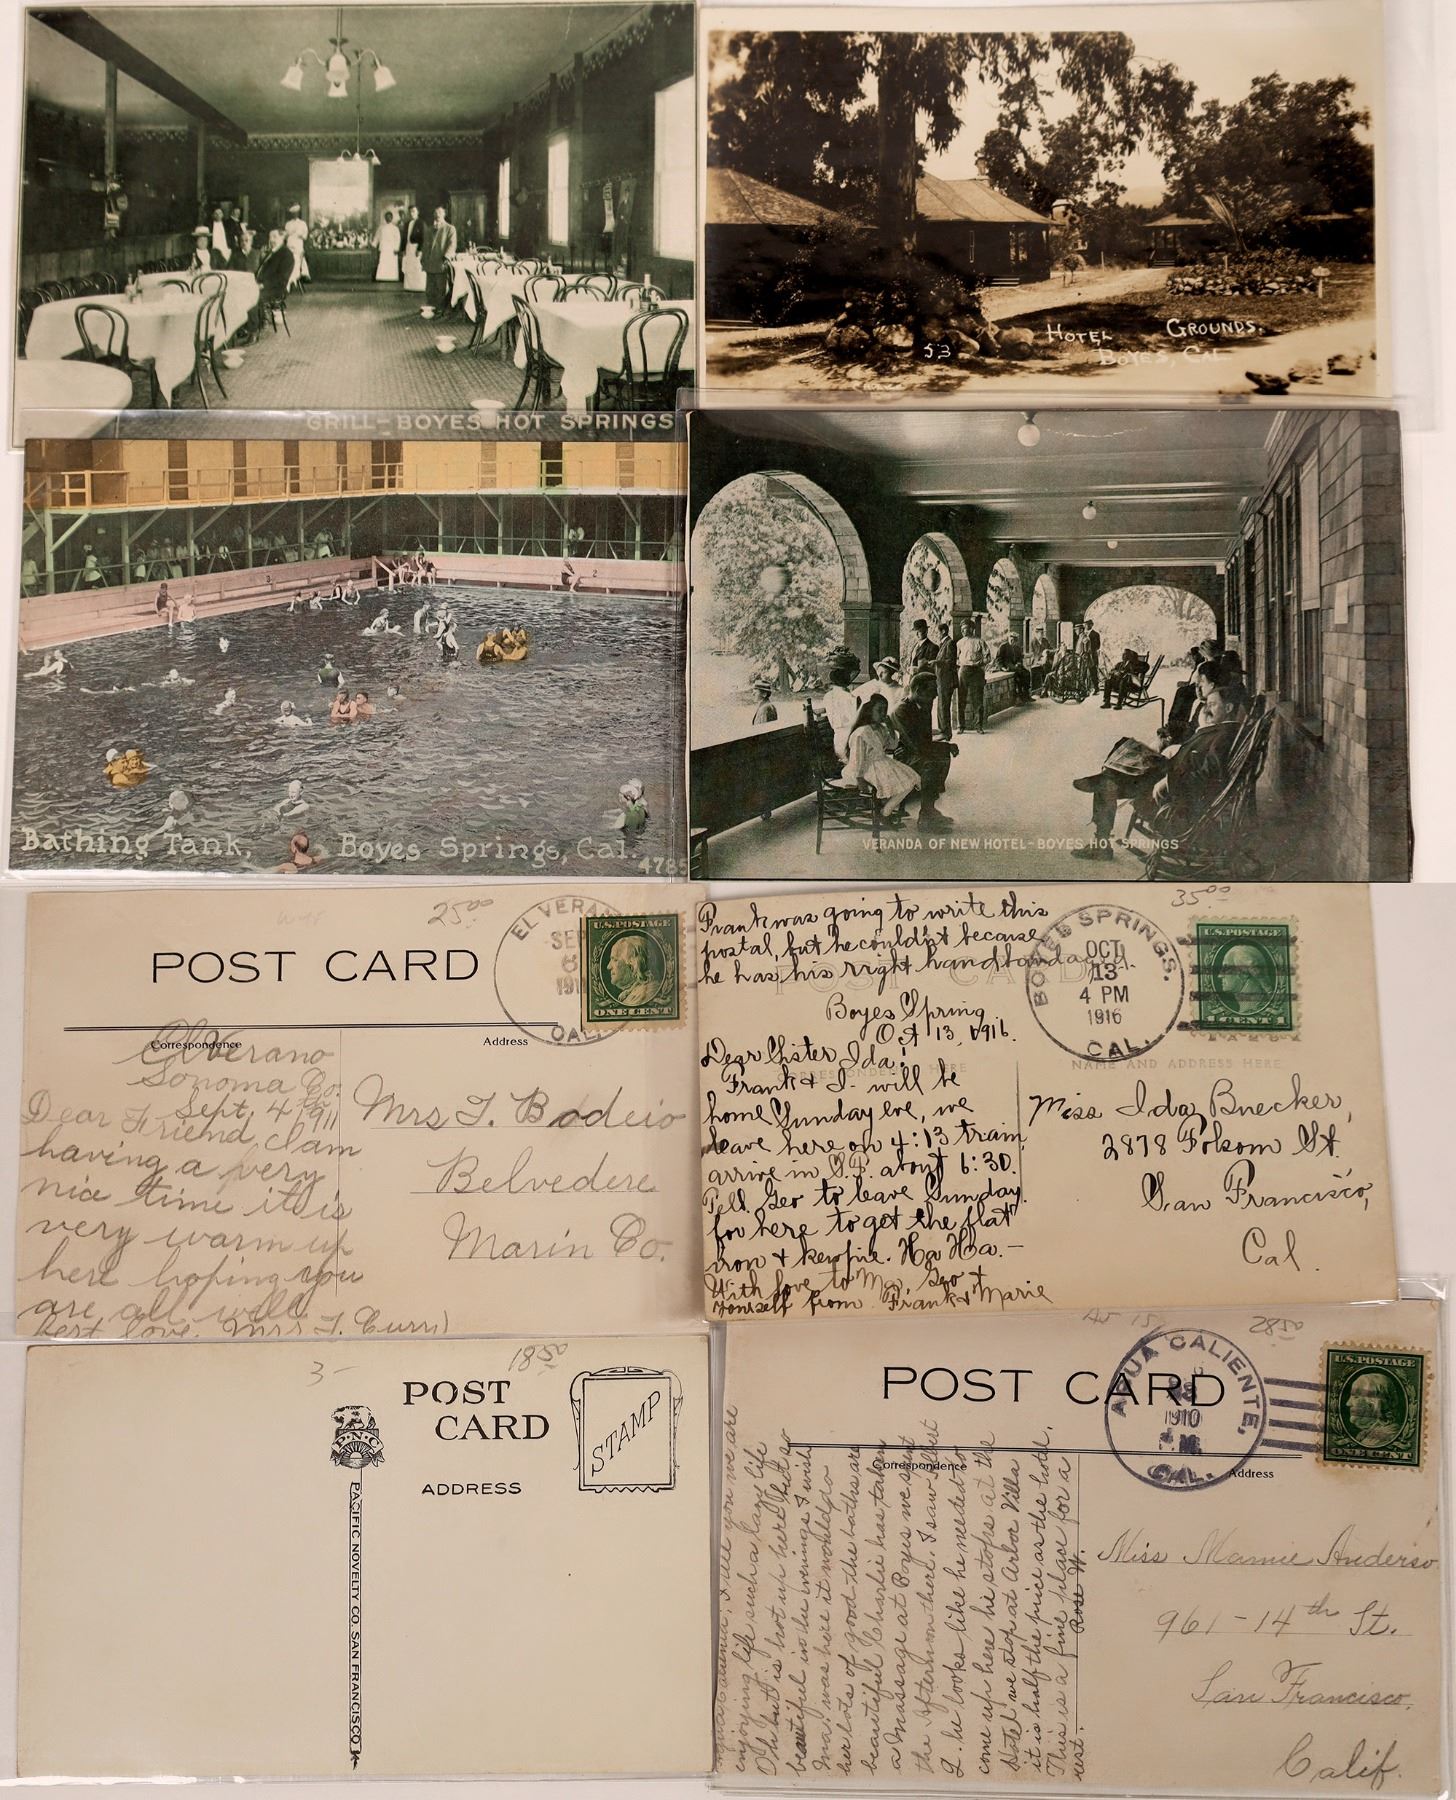 GRILL-BOYES HOT SPRINGS
53
HOTEL GROUNDS.
BOYES, CAL
3
2
Bathing Tank, Boyes Springs, Cal.
4785
VERANDA OF NEW HOTEL-BOYES HOT SPRINGS
25.00
POST CARD
EL VERANO
SEP
6
191
CAL.
U.S. POSTAGE
ONE CENT
Correspondence
Address
El Verano
Sonoma Co.
Sept. 4th 1911
Dear Friend, I am
having a very
nice time it is
very warm up
here hoping you
are all well
Best love. Mrs T. Curri
Mrs T. Bodeio
Belvedere
Marin Co.
35.00
Frank was going to write this
postal, but he couldn't because
he has his right hand bandaged.
POST CARD
BOYES SPRINGS.
OCT
13
4 PM
1916
CAL.
U.S. POSTAGE
1 CENT 1
Boyes Spring
Oct 13, 1916.
CORRESPONDENCE HERE
NAME AND ADDRESS HERE
Dear Sister Ida;
Frank & I will be
home Sunday eve, we
leave here on 4:13 train,
arrive in S.F. about 6:30.
Tell Geo to leave Sunday
for here to get the flat
iron & kewpie. Ha Ha.-
With love to Ma, Geo &
yourself from Frank & Marie
Miss Ida Buecker,
2878 Folsom St.
San Francisco,
Cal.
3-
18.50
POST
CARD
STAMP
P.N.C
ADDRESS
PACIFIC NOVELTY CO. SAN FRANCISCO
28.50
POST CARD
AGUA CALIENTE,
1910
CAL.
U.S. POSTAGE
ONE CENT
Correspondence
Address
I tell you we are
enjoying life such a lazy life
Oh but is hot up here but so
beautiful in the evenings I wish
Ma was here it would do
her lots of good the baths are
beautiful Charlie has taken
a massage at Boyes we spent
the Afternoon there. I saw
L. he looks like he needed to
come up here he stops at the
Hotel we stop at Arbor Villa
it is half the price as the hotel.
This is a fine place for a
rest. Rose W.
Miss Mamie Anderson
961-14th St.
San Francisco.
Calif.